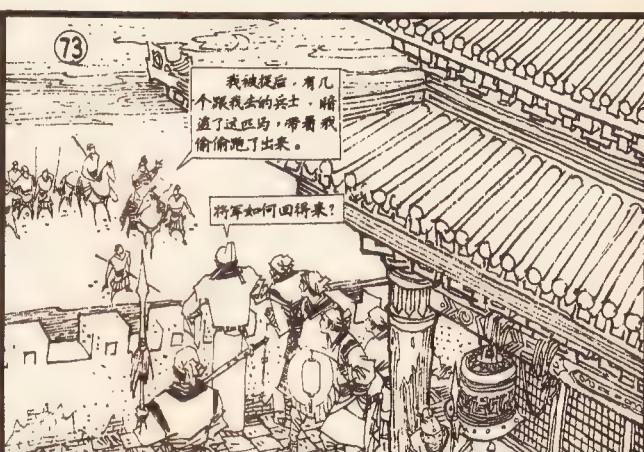 73
我被捉后，有几
个跟我去的兵士，暗
盗了这匹马，带着我
偷偷跑了出来。
将军如何回得来？